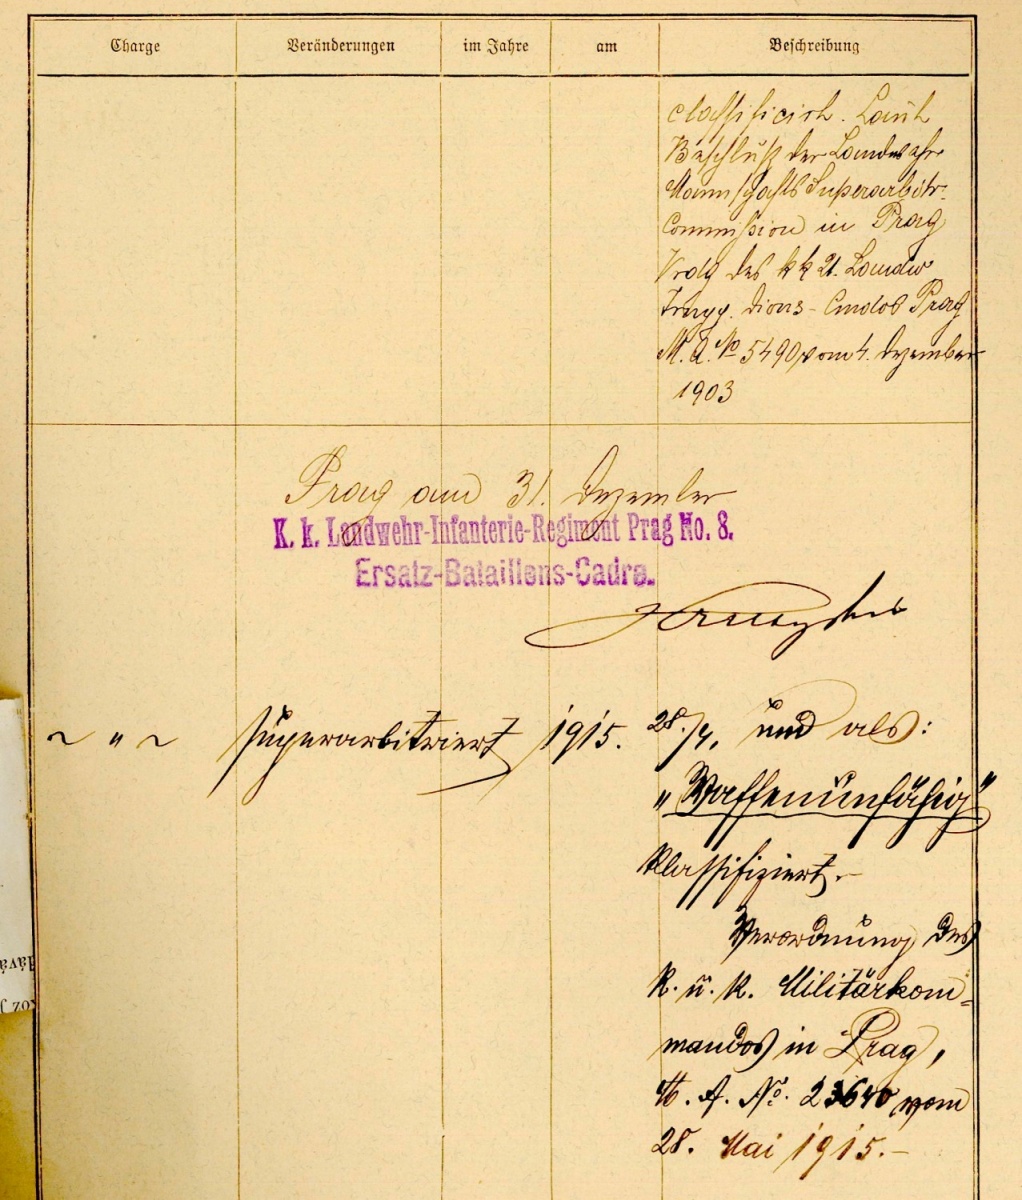 Charge Veränderungen im Jahre am Beschreibung
classificirt. Laut
Beschluß der Landwehr
Mannschafts Superarbitr.
Commission in Prag
Vrdg des kk 21. Landw
Trupp. Dions- Cmdos Prag
M.A. No 5490 vom 4. Dezember
1903
Prag am 31. Dezember
K. k. Landwehr-Infanterie-Regiment Prag No. 8.
Ersatz-Bataillons-Cadre.
~ " ~ superarbitriert 1915. 28./4. und als:
„Waffenunfähig"
klassifiziert.-
Verordnung des
k. u. k. Militärkom-
mandos in Prag,
M. A. No. 23640 vom
28. Mai 1915.-